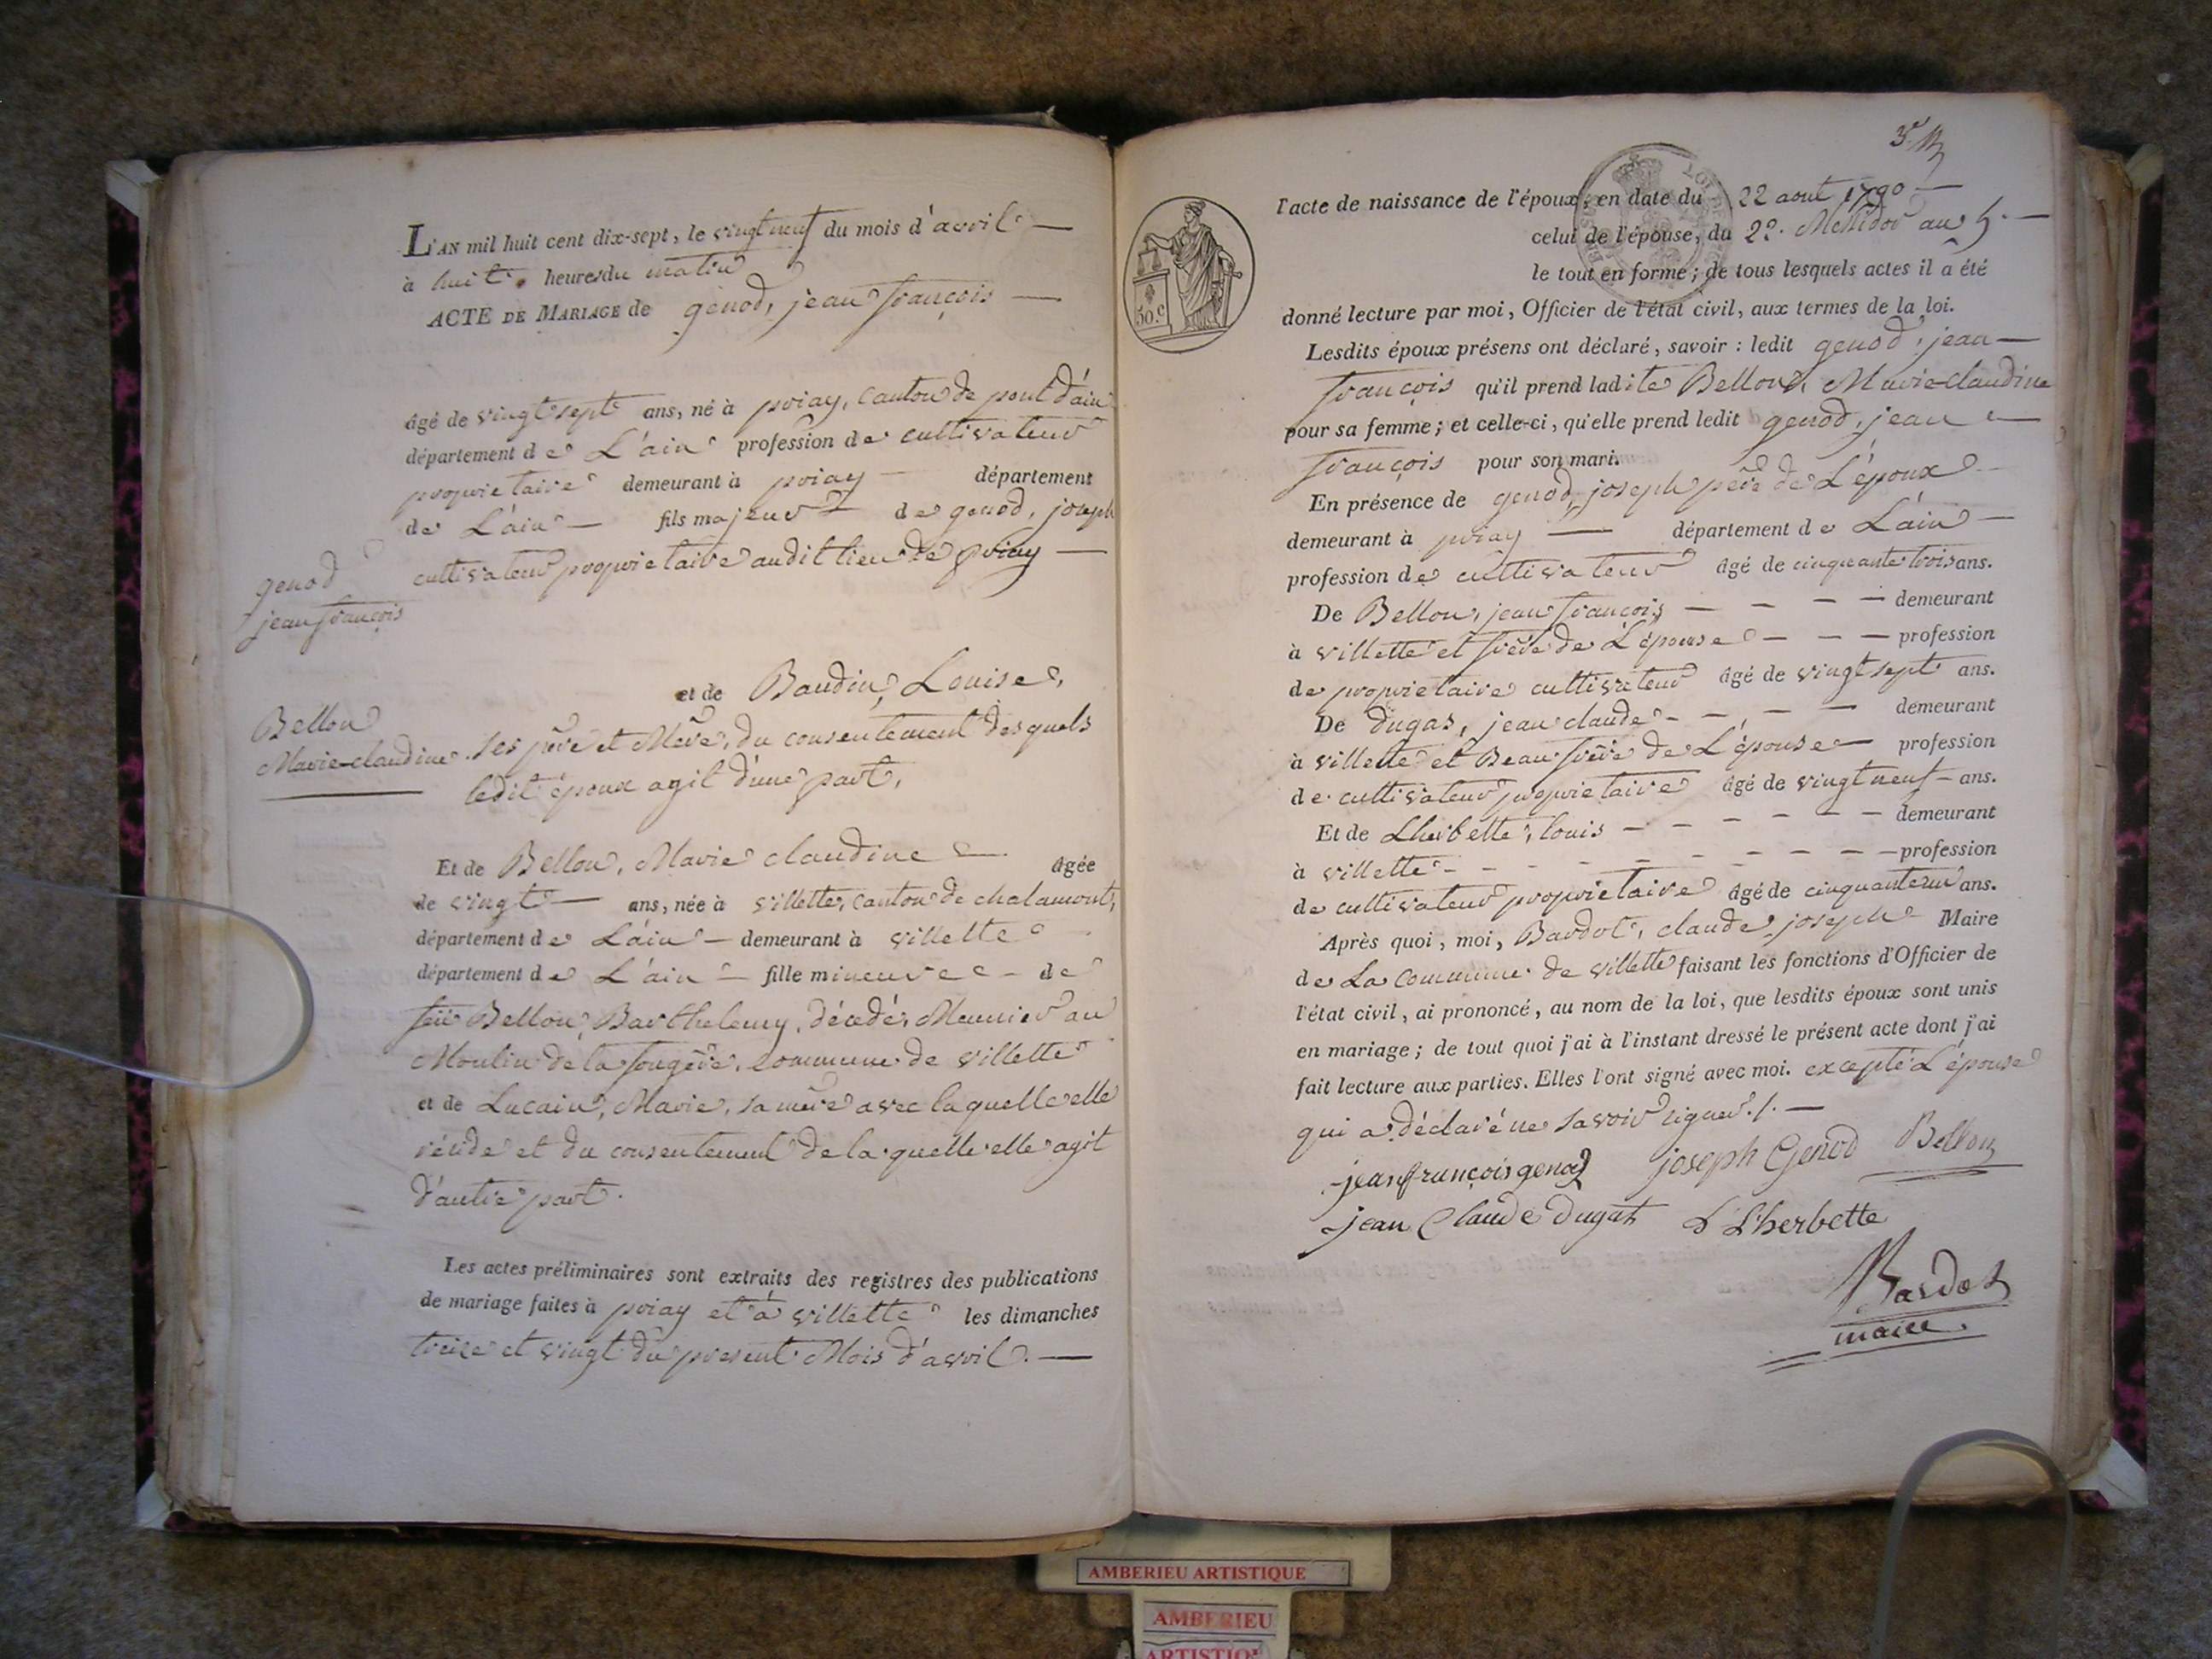 L'AN mil huit cent dix-sept, le vingt neuf du mois d'avril
à huit heures du matin
ACTE DE MARIAGE de genod, jean françois
âgé de vingt sept ans, né à priay, canton de pont d'ain
département de L'ain profession de cultivateur
proprietaire demeurant à priay département
de L'ain fils majeur de genod, joseph
cultivateur proprietaire audit lieu de priay
genod
jean françois
et de Baudin, Louise,
Bellon
Marie-claudine
ses père et Mère, du consentement desquels
ledit époux agit d'une part,
Et de Bellon, Marie claudine âgée
de vingt ans, née à villette, canton de chalamont,
département de L'ain demeurant à villette
département de L'ain fille mineure de
feü Bellon, Barthelemy, décédé, Meunier au
Moulin de la fougère, commune de villette
et de Lucain, Marie, sa mère avec laquelle elle
réside et du consentement de laquelle elle agit
d'autre part.
Les actes préliminaires sont extraits des registres des publications
de mariage faites à priay et à villette les dimanches
treize et vingt du present Mois d'avril.
3e
50 c
l'acte de naissance de l'époux, en date du 22 aout 1790
celui de l'épouse, du 22. Messidor an 5.
le tout en forme; de tous lesquels actes il a été
donné lecture par moi, Officier de l'état civil, aux termes de la loi.
Lesdits époux présens ont déclaré, savoir : ledit genod, jean
françois qu'il prend ladite Bellon, Marie-claudine
pour sa femme; et celle-ci, qu'elle prend ledit genod, jean
françois pour son mari.
En présence de genod, joseph père de L'époux
demeurant à priay département de L'ain
profession de cultivateur âgé de cinquante trois ans.
De Bellon, jean françois demeurant
à villette et frère de L'épouse profession
de proprietaire cultivateur âgé de vingt sept ans.
De dugas, jean claude demeurant
à villette et Beau frère de L'épouse profession
de cultivateur proprietaire âgé de vingt neuf ans.
Et de Lherbette, louis demeurant
à villette profession
de cultivateur proprietaire âgé de cinquante un ans.
Après quoi, moi, Bardot, claude joseph Maire
de La commune de villette faisant les fonctions d'Officier de
l'état civil, ai prononcé, au nom de la loi, que lesdits époux sont unis
en mariage; de tout quoi j'ai à l'instant dressé le présent acte dont j'ai
fait lecture aux parties. Elles l'ont signé avec moi. excepté L'épouse
qui a déclaré ne savoir signer./.
jean françois genod joseph Genod Bellon
jean Claude dugas L Lherbette
Bardot
maire.
AMBERIEU ARTISTIQUE
AMBERIEU
ARTISTIQUE